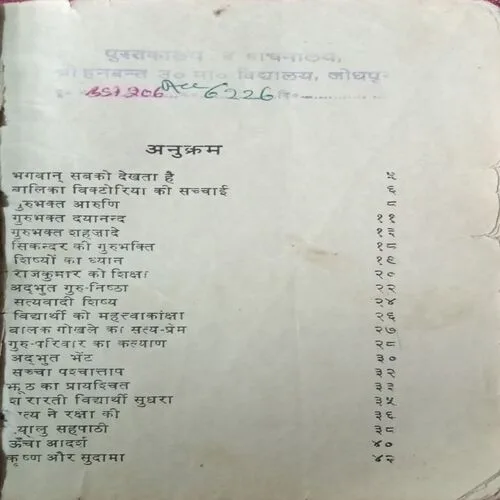 पुस्तकालय व वाचनालय,
श्री हनवन्त उ० मा० विद्यालय, जोधपु
Acc 6226
अनुक्रम
भगवान् सबको देखता है ५
बालिका विक्टोरिया की सच्चाई ६
ुरुभक्त आरुणि ८
गुरुभक्त दयानन्द ११
गुरुभक्त शहज़ादे १३
सिकन्दर की गुरुभक्ति १८
शिष्यों का ध्यान १९
राजकुमार को शिक्षा २०
अद्भुत गुरु-निष्ठा २२
सत्यवादी शिष्य २४
विद्यार्थी को महत्त्वाकांक्षा २६
बालक गोखले का सत्य-प्रेम २७
गुरु-परिवार का कल्याण २८
अद्भुत भेंट ३०
सच्चा पश्चात्ताप ३२
झूठ का प्रायश्चित ३३
शरारती विद्यार्थी सुधरा ३५
त्य ने रक्षा की ३६
यालु सहपाठी ३८
ऊँचा आदर्श ४०
कृष्ण और सुदामा ४२